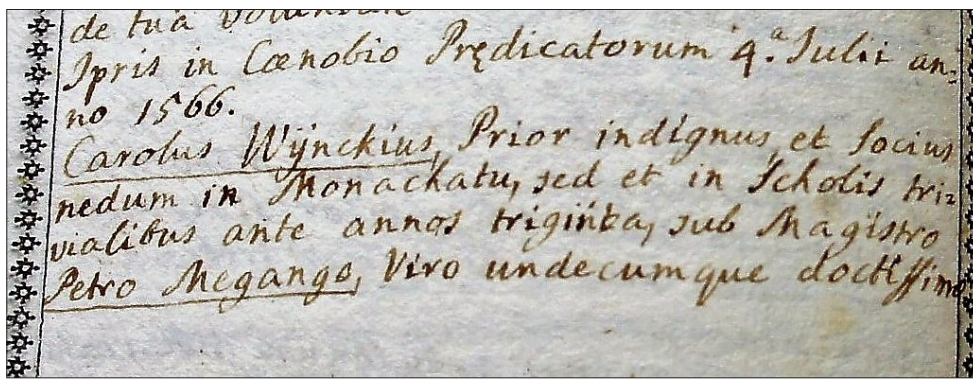 de tuâ voluntate
Ipris in Cœnobio Prędicatorum 4.ª Iulii an=
no 1566.
Carolus Wÿnckius, Prior indignus, et Socius
nedum in Monachatu, sed et in Scholis tri=
vialibus ante annos triginta, sub Magistro
Petro Megango, Viro undecumque doctissimo